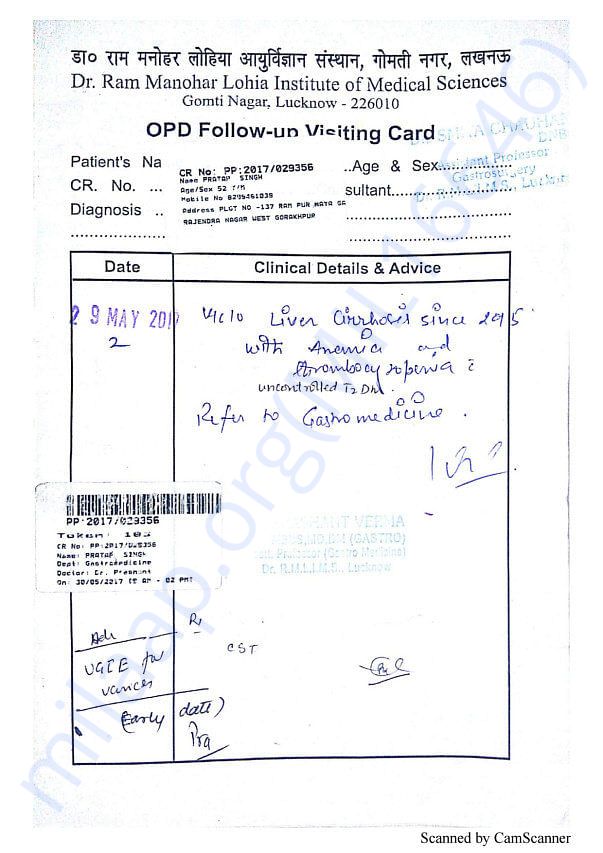 डा० राम मनोहर लोहिया आयुर्विज्ञान संस्थान, गोमती नगर, लखनऊ
Dr. Ram Manohar Lohia Institute of Medical Sciences
Gomti Nagar, Lucknow - 226010
OPD Follow-up Visiting Card
Assistant Professor
Gastrosurgery
Dr. R.M.L.I.M.S., Lucknow
Patient's Na
CR No: PP:2017/029356
Name PRATAP SINGH
Age/Sex 52 Y/M
Mobile No
Address PLGT NO -137 RAM PUR NAYA GA
RAJENDRA NAGAR WEST GORAKHPUR
..Age & Sex
CR. No. ...
sultant
Diagnosis ..
Date
Clinical Details & Advice
29 MAY 2017
2
Liver Cirrhosis since
with Anemia and
uncontrolled T2 DM.
Refer to Gastromedicine.
PP:2017/029356
Token:
CR No: PP:2017/029356
Name: PRATAP SINGH
Dept: Gastromedicine
Doctor: Dr. Prashant
On: 30/05/2017
(GASTRO)
Professor (Gastro Medicine)
Dr. R.M.L.I.M.S., Lucknow
Adv
UGIE for
varices
(Early date)
CST
milaap.org
Scanned by CamScanner